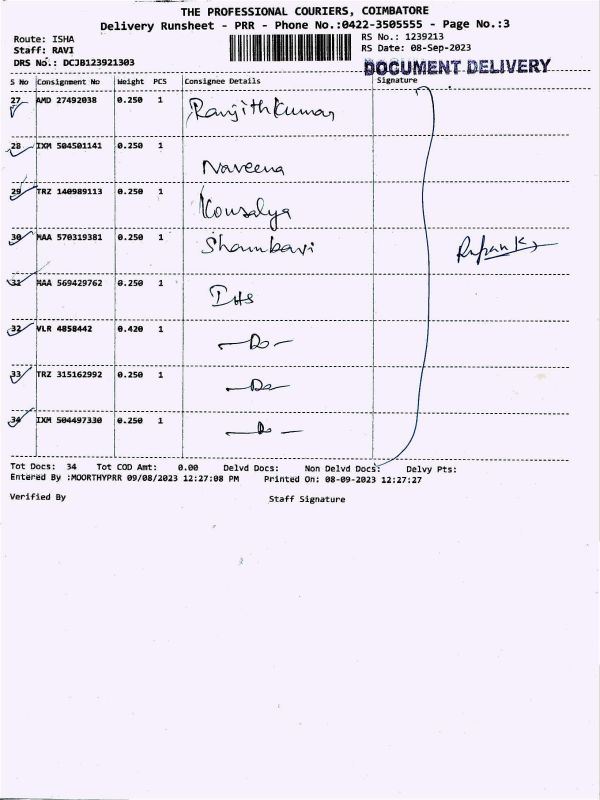 THE PROFESSIONAL COURIERS, COIMBATORE
Delivery Runsheet - PRR - Phone No.:0422-3505555 - Page No.:3
Route: ISHA RS No.: 1239213
Staff: RAVI RS Date: 08-Sep-2023
DRS No.: DCJB123921303 DOCUMENT DELIVERY
S No Consignment No Weight PCS Consignee Details Signature
27 AMD 27492038 0.250 1 Ranjithkumar
28 IXM 504501141 0.250 1 Naveena
29 TRZ 140989113 0.250 1 Kousalya
30 MAA 570319381 0.250 1 Shambavi
31 MAA 569429762 0.250 1 IHS
32 VLR 4858442 0.420 1 -Do-
33 TRZ 315162992 0.250 1 -Do-
34 IXM 504497330 0.250 1 -Do-
Tot Docs: 34 Tot COD Amt: 0.00 Delvd Docs: Non Delvd Docs: Delvy Pts:
Entered By :MOORTHYPRR 09/08/2023 12:27:08 PM Printed On: 08-09-2023 12:27:27
Verified By Staff Signature